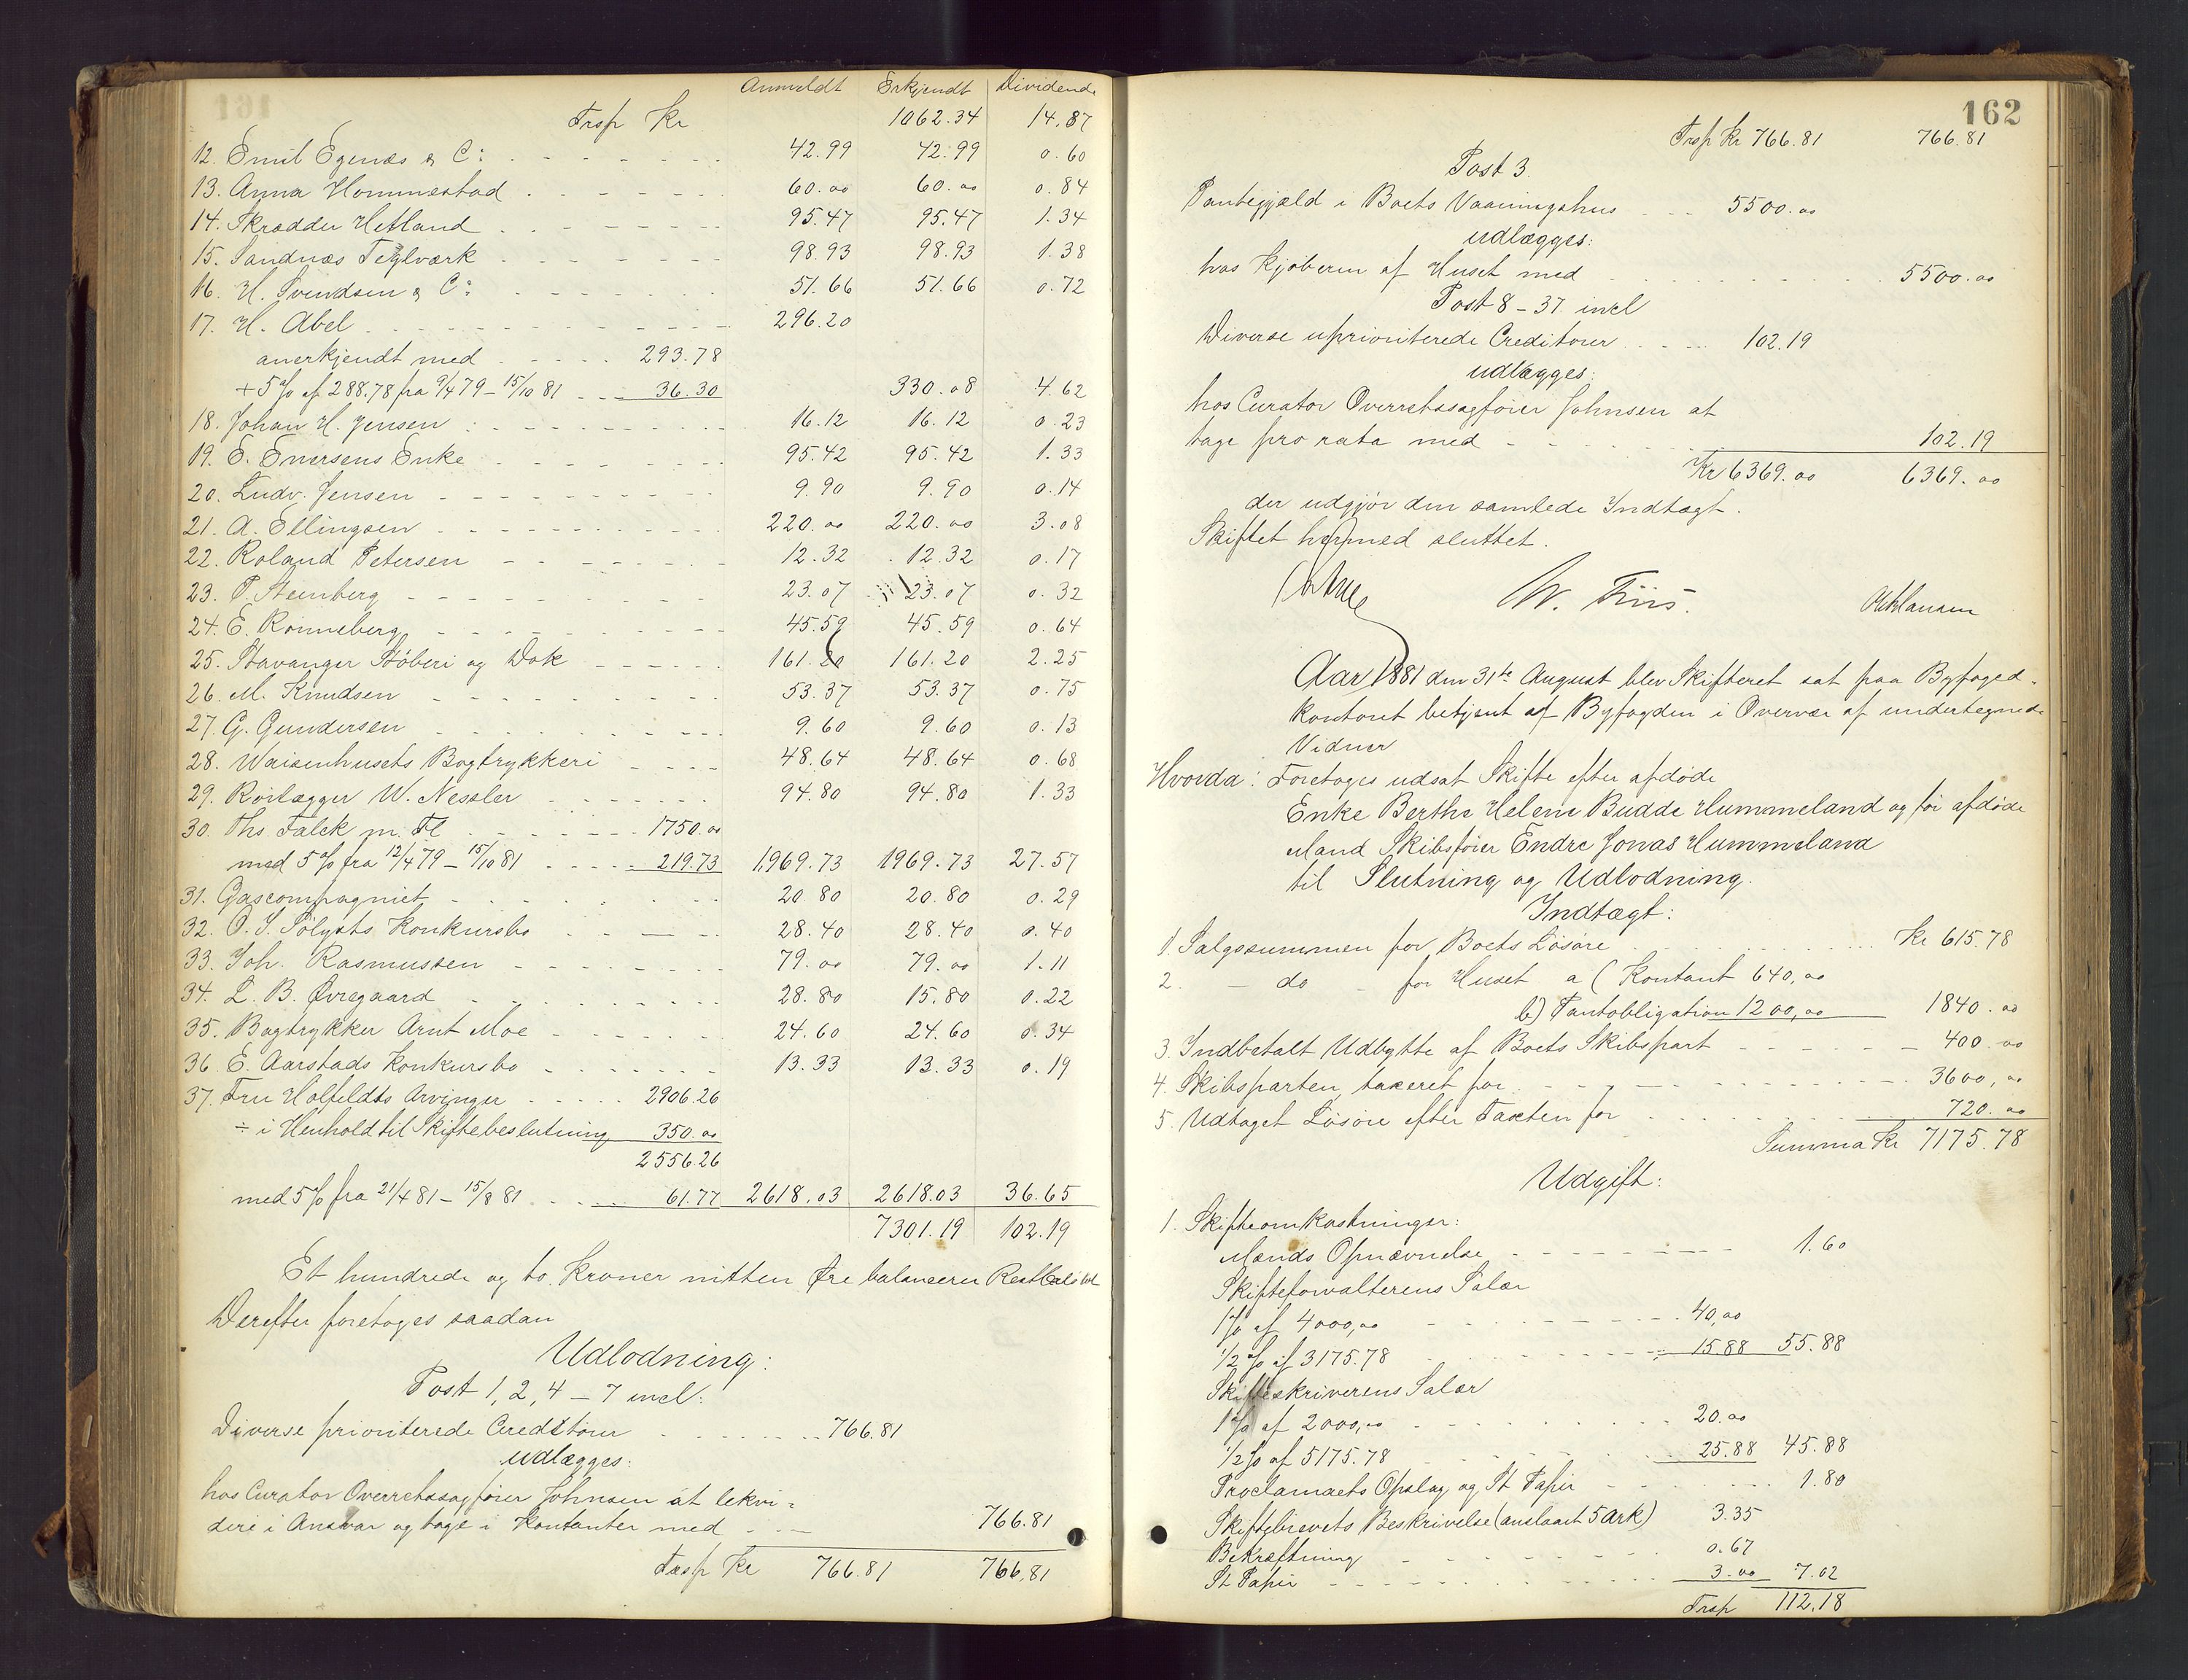 Anmeldt Erkjendt Dividende
Trsp Kr 1062.34 14.87
12. Emil Egenæs & C: 42.99 42.99 0.60
13. Anna Hommestad 60.00 60.00 0.84
14. Skrædder Hetland 95.47 95.47 1.34
15. Sandnæs Teglværk 98.93 98.93 1.38
16. H. Svendsen & C: 51.66 51.66 0.72
17. H. Abel 296.20
anerkjendt med 293.78
+ 5% af 288.78 fra 9/4 79 – 15/10 81 36.30 330.08 4.62
18. Johan H. Jensen 16.12 16.12 0.23
19. E. Enersens Enke 95.42 95.42 1.33
20. Ludv. Jensen 9.90 9.90 0.14
21. A. Ellingsen 220.00 220.00 3.08
22. Roland Petersen 12.32 12.32 0.17
23. P. Steinberg 23.07 23.07 0.32
24. E. Rønneberg 45.59 45.59 0.64
25. Stavanger Støberi og Dok 161.20 161.20 2.25
26. M. Knudsen 53.37 53.37 0.75
27. G. Gundersen 9.60 9.60 0.13
28. Waisenhusets Bogtrykkeri 48.64 48.64 0.68
29. Rørlægger W. Nessler 94.80 94.80 1.33
30. Ths. Falck m. Fl 1750.00
med 5% fra 12/4 79 – 15/10 81 219.73 1969.73 1969.73 27.57
31. Gascompagniet 20.80 20.80 0.29
32. O. S. Sølysts Konkursbo 28.40 28.40 0.40
33. Joh. Rasmussen 79.00 79.00 1.11
34. L. B. Øvregaard 28.80 15.80 0.22
35. Bogtrykker Arnt Moe 24.60 24.60 0.34
36. E. Aarstads Konkursbo 13.33 13.33 0.19
37. Fru Holfeldts Arvinger 2906.26
÷ i Henhold til Skiftebeslutning 350.00
2556.26
med 5% fra 21/4 81 – 15/8 81 61.77 2618.03 2618.03 36.65
7301.19 102.19
Et hundrede og to Kroner nitten Øre balancerer
Derefter foretoges saadan
Udlodning:
Post 1, 2, 4 – 7 incl:
Diverse prioriterede Creditorer 766.81
udlægges:
hos Curator Overretssagfører Johnsen at lekvi=
dere i Ansvar og tage i Kontanter med 766.81
Trsp Kr 766.81 766.81
162
Trsp Kr 766.81 766.81
Post 3.
Pantegjæld i Boets Vaaningshus 5500.00
udlægges:
hos Kjøberen af Huset med 5500.00
Post 8 – 37 incl
Diverse uprioriterede Creditorer 102.19
udlægges:
hos Curator Overretssagfører Johnsen at
tage pro rata med 102.19
Kr 6369.00 6369.00
der udgjør den samlede Indtægt.
Skiftet hermed sluttet.
W. Friis.
Aar 1881 den 31te August blev Skifteret sat paa Byfoged=
kontoret betjent af Byfogden i Overvær af undertegnede
Vidner
Hvorda: Foretoges udsat Skifte efter afdøde
Enke Berthe Helene Budde Hummeland og før afdøde
Mand Skibsfører Endre Jonas Hummeland
til Slutning og Udlodning.
Indtægt:
1. Salgssummen for Boets Løsøre Kr 615.78
2. – do – for Huset a ( Kontant 640,00
b) Pantobligation 1200,00 1840.00
3. Indbetalt Udbytte af Boets Skibspart 400.00
4. Skibsparten, taxeret for 3600,00
5. Udtaget Løsøre efter Taxten for 720.00
Summa Kr 7175.78
Udgift:
1. Skifteomkostninger:
Mænds Opnævnelse 1.60
Skifteforvalterens Salær
1% af 4000,00 40,00
1/2% af 3175.78 15.88 55.88
Skifteskriverens Salær
1% af 2000,00 20.00
1/2% af 5175.78 25.88 45.88
Proclamaets Opslag og St Papir 1.80
Skiftebrevets Beskrivelse (anslaaet 5 Ark) 3.35
Bekræftning 0.67
St Papir 3.00 7.02
Trsp 112.18